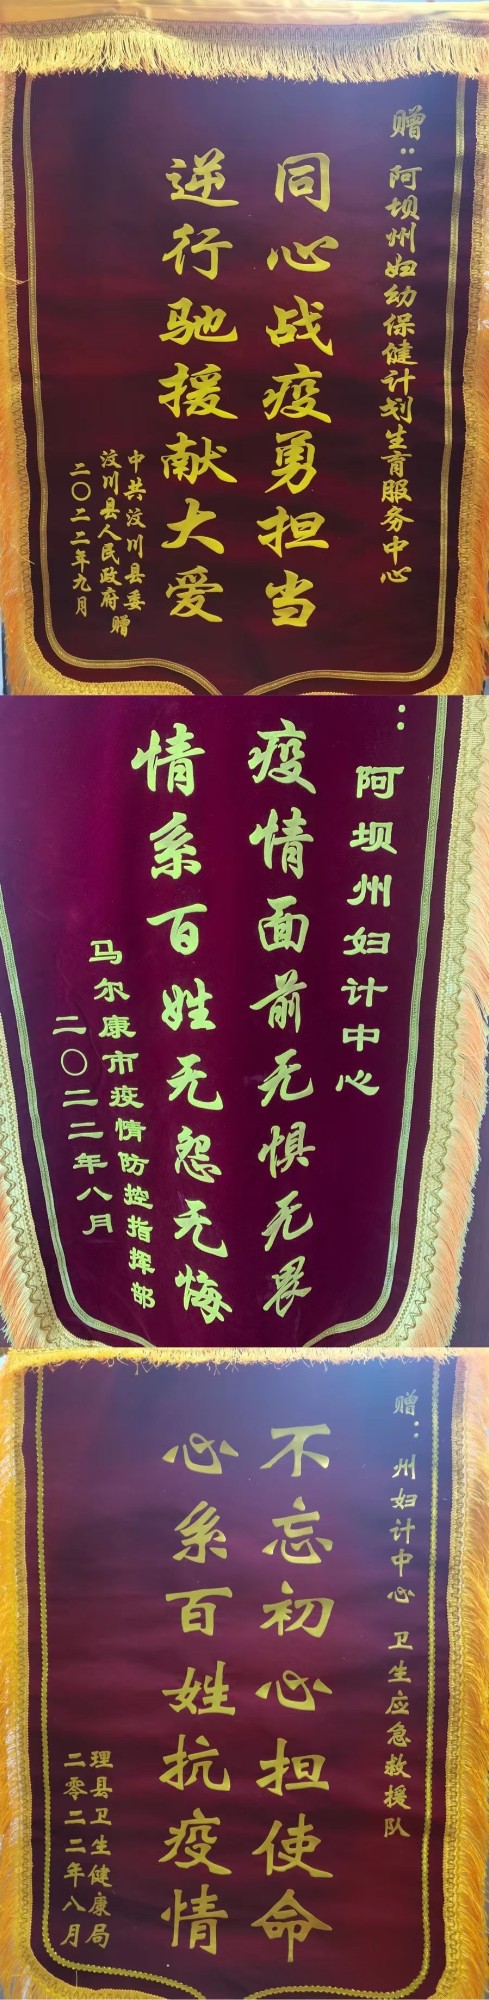 赠:阿坝州妇幼保健计划生育服务中心
同心战疫勇担当
逆行驰援献大爱
中共汶川县委
汶川县人民政府 赠
二〇二二年九月
:阿坝州妇计中心
疫情面前无惧无畏
情系百姓无怨无悔
马尔康市疫情防控指挥部
二〇二二年八月
赠:州妇计中心 卫生应急救援队
不忘初心担使命
心系百姓抗疫情
理县卫生健康局
二零二二年八月